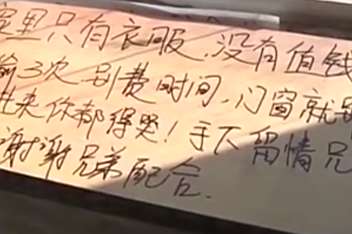 里只有衣服,没有值钱
偷3次,别费时间,门窗就别
进来你都得哭!手下留情兄
谢谢兄弟配合.